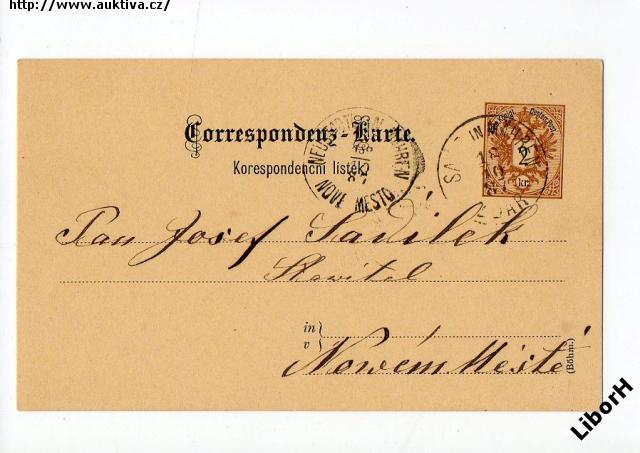 http://www.auktiva.cz/
Correspondenz-Karte.
Korespondenční lístek.
NEUSTADTL IN MÄHREN
NOVÉ MĚSTO
SAAR IN MÄHREN
ŽĎÁR
2
kr.
Pan Josef Sadílek
Stavitel
in
v
Novém Městě
(Böhm.)
LiborH